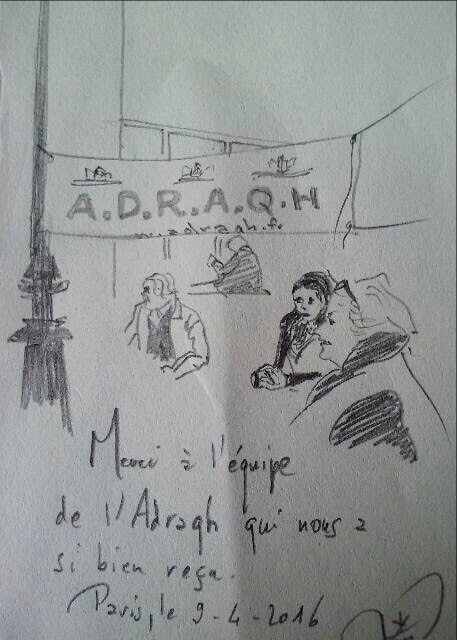 A.D.R.A.Q.H
w.adragh.fr
Merci à l'équipe
de l'Adragh qui nous a
si bien reçu.
Paris, le 9-4-2016